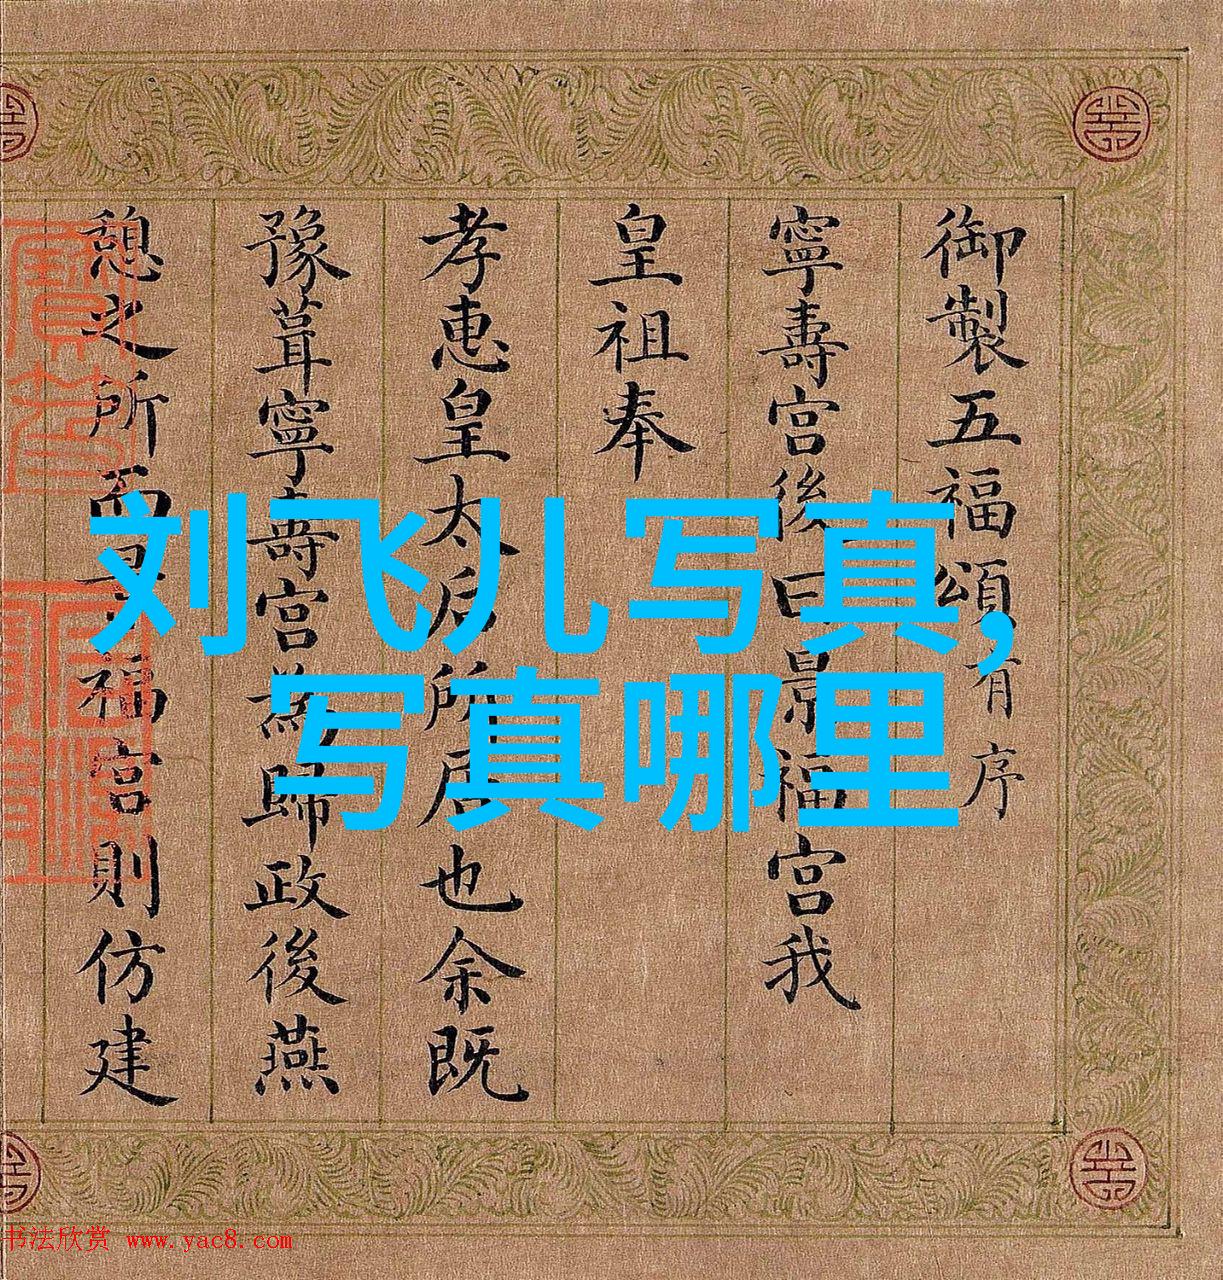 刘飞儿写真,
写真哪里
御製五福頌有序
寧壽宫後曰景福宫我
皇祖奉
孝惠皇太后所居也余既
豫葺寧壽宫為歸政後燕
憩之所而景福宫則仿建
书法欣赏 www.yac8.com